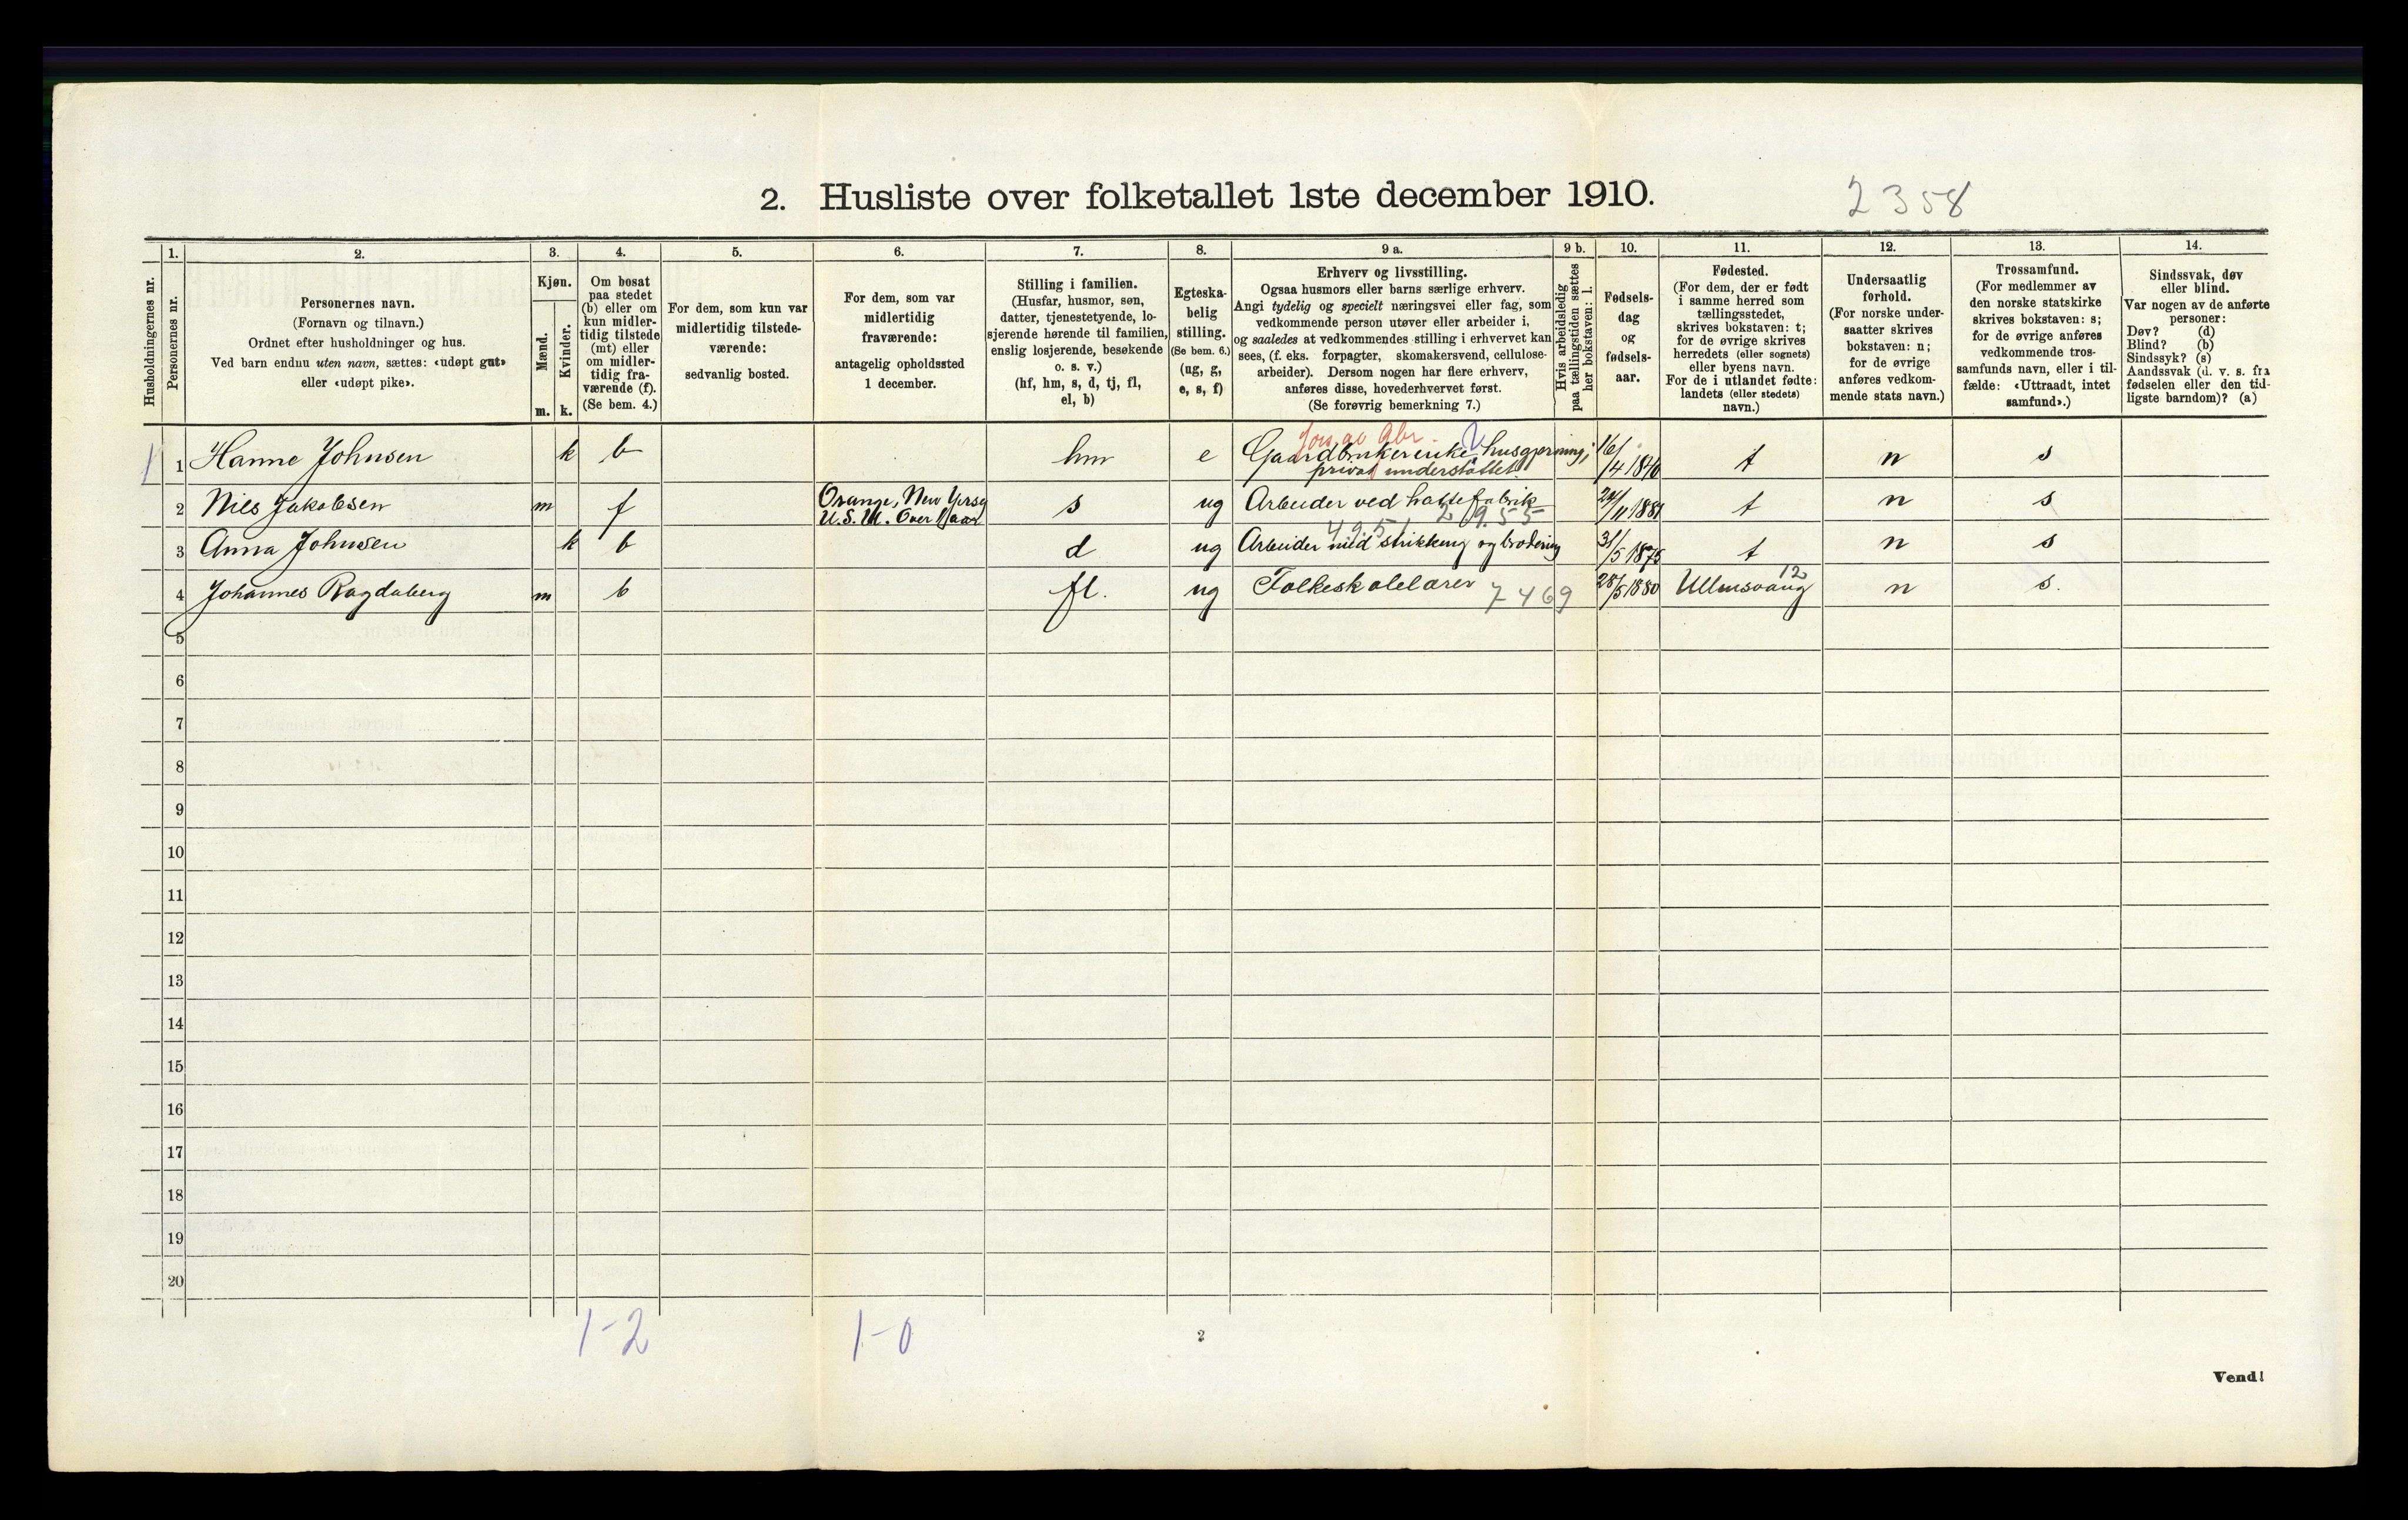 2. Husliste over folketallet 1ste december 1910.
2358
Husholdningernes nr.
1.
Personernes nr.
2.
Personernes navn.
(Fornavn og tilnavn.)
Ordnet efter husholdninger og hus.
Ved barn endnu uten navn, sættes: «udøpt gut»
eller «udøpt pike».
3.
Kjøn.
Mænd.
Kvinder.
m. k.
4.
Om bosat
paa stedet
(b) eller om
kun midler-
tidig tilstede
(mt) eller
om midler-
tidig fra-
værende (f).
(Se bem. 4.)
5.
For dem, som kun var
midlertidig tilstede-
værende:
sedvanlig bosted.
6.
For dem, som var
midlertidig
fraværende:
antagelig opholdssted
1 december.
7.
Stilling i familien.
(Husfar, husmor, søn,
datter, tjenestetyende, lo-
sjerende hørende til familien,
enslig losjerende, besøkende
o. s. v.)
(hf, hm, s, d, tj, fl,
el, b)
8.
Egteska-
belig
stilling.
(Se bem. 6.)
(ug, g,
e, s, f)
9 a.
Erhverv og livsstilling.
Ogsaa husmors eller barns særlige erhverv.
Angi tydelig og specielt næringsvei eller fag, som
vedkommende person utøver eller arbeider i,
og saaledes at vedkommendes stilling i erhvervet kan
sees, (f. eks. forpagter, skomakersvend, cellulose-
arbeider). Dersom nogen har flere erhverv,
anføres disse, hovederhvervet først.
(Se forøvrig bemerkning 7.)
9 b.
Hvis arbeidsledig
paa tællingstiden sættes
her bokstaven: l.
10.
Fødsels-
dag
og
fødsels-
aar.
11.
Fødested.
(For dem, der er født
i samme herred som
tællingsstedet,
skrives bokstaven: t;
for de øvrige skrives
herredets (eller sognets)
eller byens navn.
For de i utlandet fødte:
landets (eller stedets)
navn.)
12.
Undersaatlig
forhold.
(For norske under-
saatter skrives
bokstaven: n;
for de øvrige
anføres vedkom-
mende stats navn.)
13.
Trossamfund.
(For medlemmer av
den norske statskirke
skrives bokstaven: s;
for de øvrige anføres
vedkommende tros-
samfunds navn, eller i til-
fælde: «Uttraadt, intet
samfund».)
14.
Sindssvak, døv
eller blind.
Var nogen av de anførte
personer:
Døv? (d)
Blind? (b)
Sindssyk? (s)
Aandssvak (d. v. s. fra
fødselen eller den tid-
ligste barndom)? (a)
1 1 Hanne Johnsen k b hm e Gaardbrukerenke, husgjerning; 16/4 1840 t n s
privat understøttet.
2 Nils Jakobsen m f Orange, New Yersey s ug Arbeider ved hattefabrik 24/11 1881 t n s
U.S.A. Over 1 aar
2 9.55
49.51
3 Anna Johnsen k b d ug Arbeider med strikking og brodering 31/5 1875 t n s
4 Johannes Ragdeberg m b fl. ug Folkeskolelærer 7469 28/5 1880 Ullensvang 12 n s.
5
6
7
8
9
10
11
12
13
14
15
16
17
18
19
20
1-2 1-0
2
Vend!